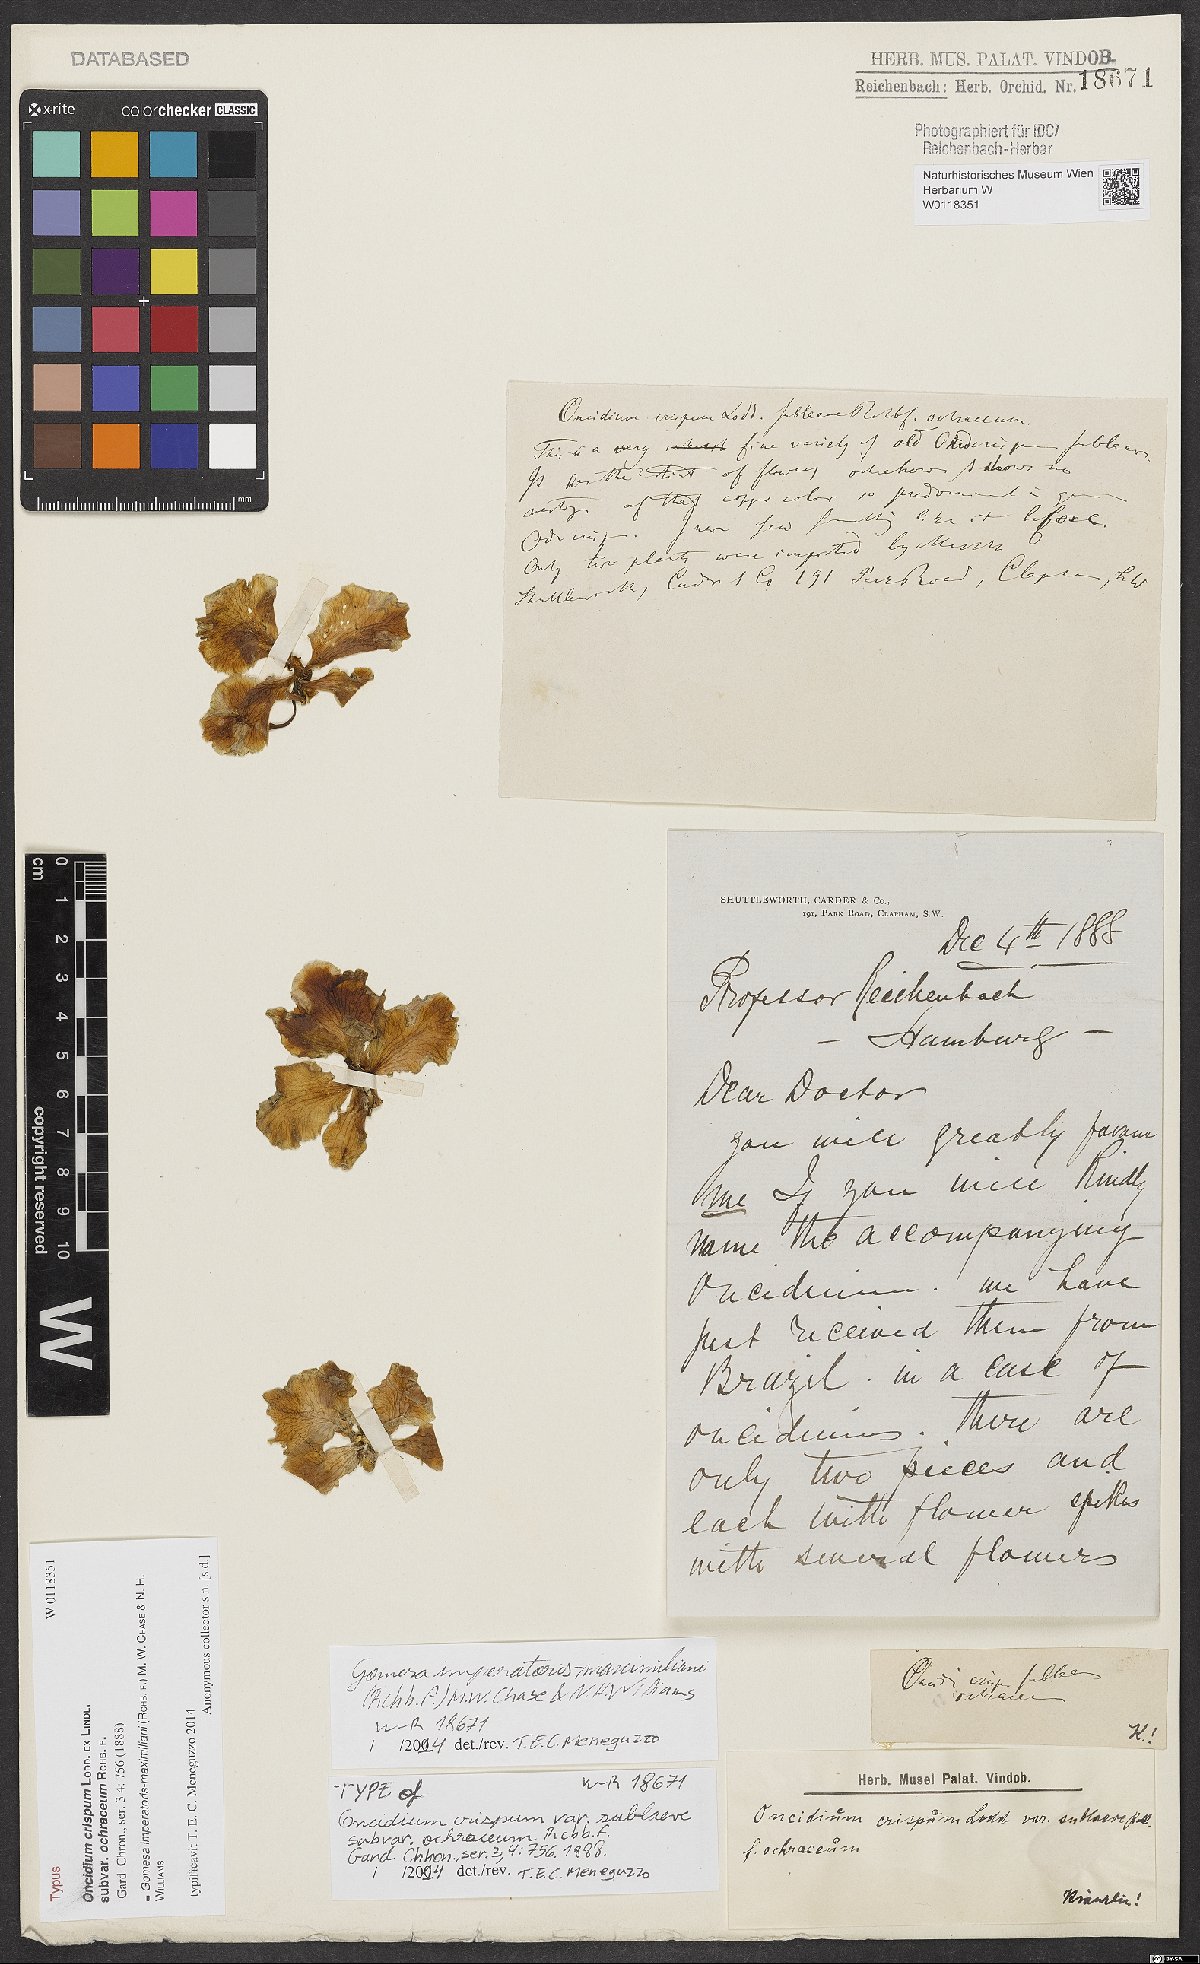 DATABASED
HERB. MUS. PALAT. VINDOB.
Reichenbach: Herb. Orchid. Nr. 18671
Photographiert für IDC/
Reichenbach-Herbar
Naturhistorisches Museum Wien
Herbarium W
W0118351
x-rite colorchecker CLASSIC
mm
Oncidium crispum Lodd. sublaeve Rchb f. ochraceum.
This is a very fine variety of old Onc. crispum sublaeve.
of flowers shows no
of that copper color so predominant in
crisp. I never saw like it before.
Only two plants were imported by Messrs
Shuttleworth, Carder & Co 191 Park Road, Clapham, S.W
SHUTTLEWORTH, CARDER & Co.,
191, PARK ROAD, CLAPHAM, S.W.
Dec 4th 1888
Professor Reichenbach
- Hamburg -
Dear Doctor
you will greatly favour
me If you will Kindly
name the accompanying
Oncidium. we have
just received them from
Brazil. in a case of
oncidiums. there are
only two pieces and
each with flower spikes
with several flowers
0 1 2 3 4 5 6 7 8 9 10
cm
copyright reserved
W
W 0118351
Typus
Oncidium crispum LODD. EX LINDL.
subvar. ochraceum RCHB. F.
Gard. Chron., ser. 3 4: 756 (1888)
= Gomesa imperatoris-maximiliani (RCHB. F.) M. W. CHASE & N. H.
WILLIAMS
typificavit T. E. C. Meneguzzo 2014
Anonymous collector s.n. [s.d.]
Gomesa imperatoris-maximiliani
(Rchb. f.) M.W. Chase & N.H. Williams
W-R 18671
1 12004 det./rev. T.E.C. Meneguzzo
TYPE of W-R 18671
Oncidium crispum var. sublaeve
subvar. ochraceum Rchb. f.
Gard. Chron., ser. 3, 4: 756. 1888.
1 12004 det./rev. T.E.C. Meneguzzo
Oncidi crisp sublaeve
ochraceum
K!
Herb. Musei Palat. Vindob.
Oncidium crispum Lodd var. sublaeve
f. ochraceum
Kränzlin!